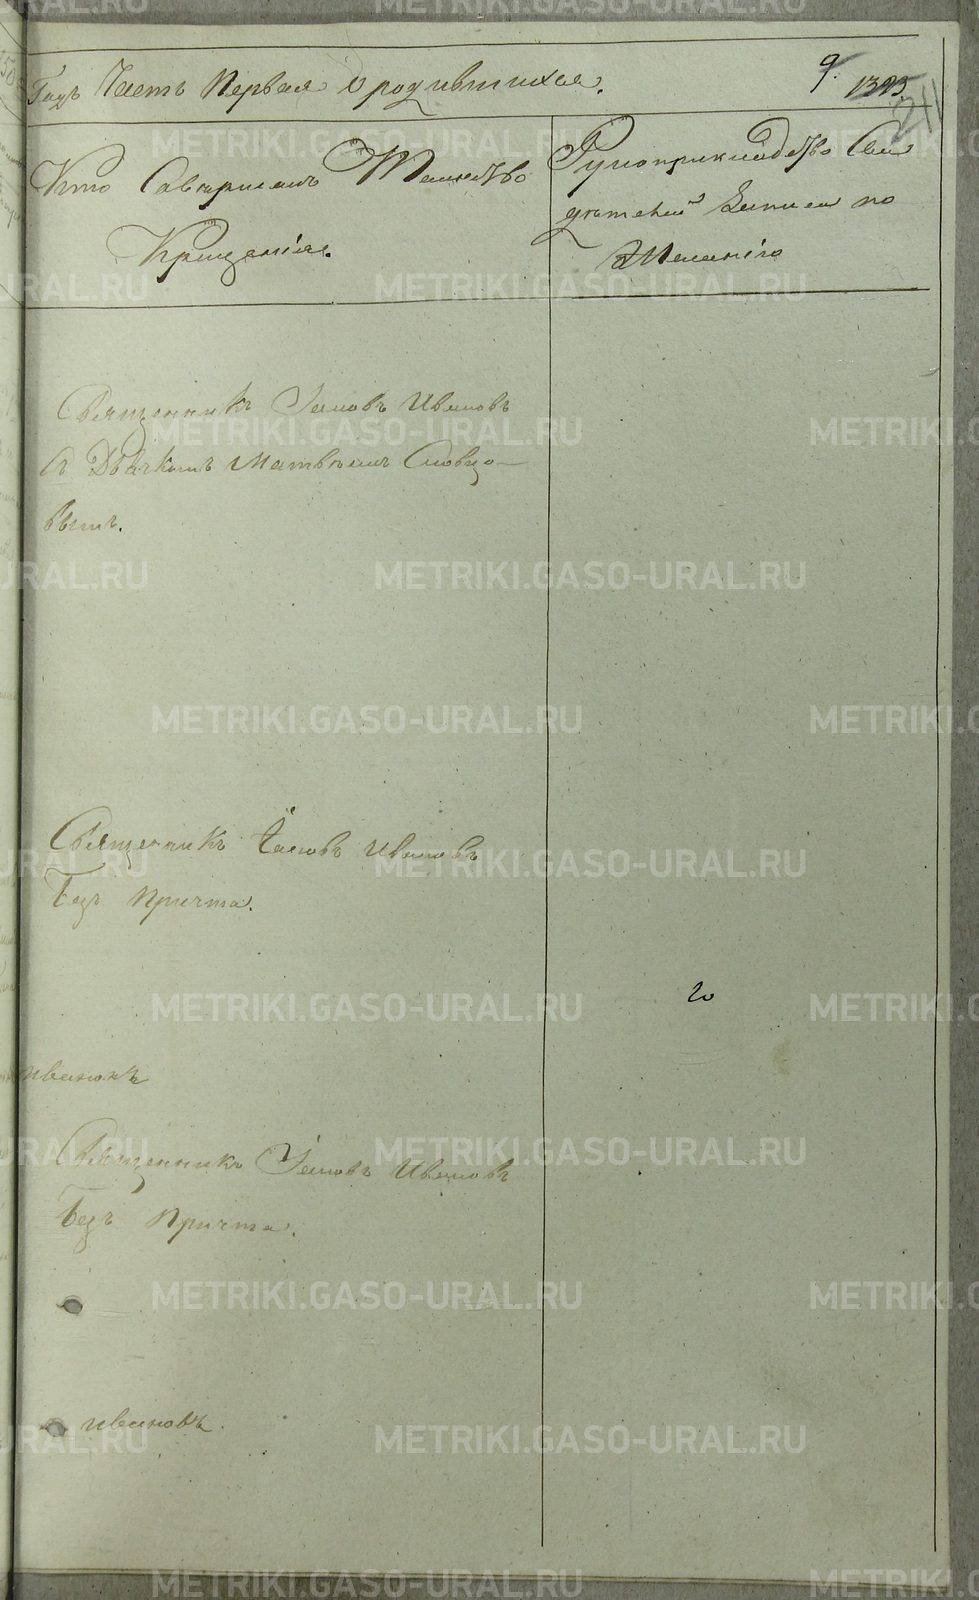 Годъ Часть Первая о родившихся. 9.
Кто Совершалъ Таинство
Крещенія.
Рукоприкладство Сви
дѣтелей Записи по
Желанію
Священникъ Іаковъ Ивановъ
Съ Дьячкомъ Матвѣемъ Словцо-
вымъ.
Священникъ Іаковъ Ивановъ
Безъ Причта.
20
Ивановъ
Священникъ Іаковъ Ивановъ
Безъ Причта.
Ивановъ.
METRIKI.GASO-URAL.RU